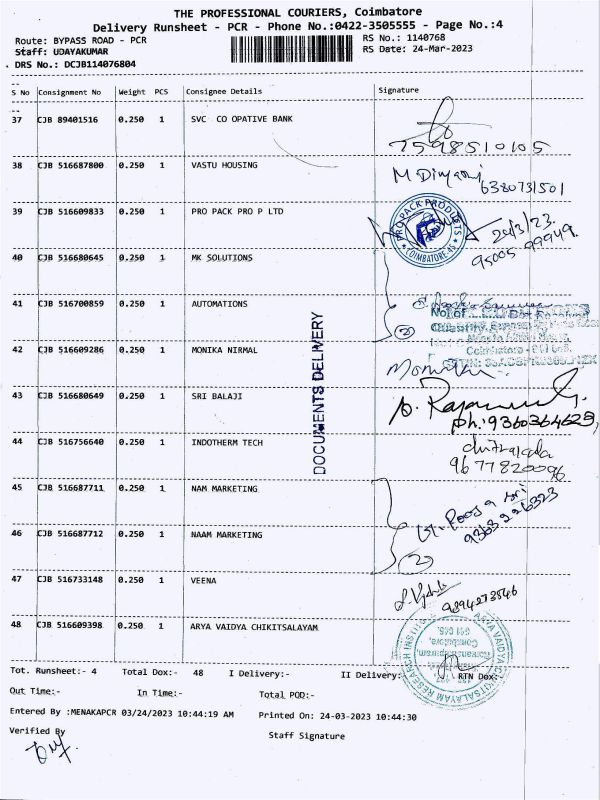 THE PROFESSIONAL COURIERS, Coimbatore
Delivery Runsheet - PCR - Phone No.:0422-3505555 - Page No.:4
Route: BYPASS ROAD - PCR
RS No.: 1140768
Staff: UDAYAKUMAR
RS Date: 24-Mar-2023
DRS No.: DCJB114076804
S No Consignment No Weight PCS Consignee Details Signature
37 CJB 89401516 0.250 1 SVC CO OPATIVE BANK
7598510105
38 CJB 516687800 0.250 1 VASTU HOUSING
6380731501
39 CJB 516609833 0.250 1 PRO PACK PRO P LTD
PRO PACK PRODUCTS
COIMBATORE
24/3/23.
95005 99949.
40 CJB 516680645 0.250 1 MK SOLUTIONS
41 CJB 516700859 0.250 1 AUTOMATIONS
No. of
Quantity
42 CJB 516609286 0.250 1 MONIKA NIRMAL
43 CJB 516680649 0.250 1 SRI BALAJI
ph: 9360364623,
44 CJB 516756640 0.250 1 INDOTHERM TECH
9677820096
DOCUMENTS DELIVERY
45 CJB 516687711 0.250 1 NAM MARKETING
9363226323
46 CJB 516687712 0.250 1 NAAM MARKETING
2
47 CJB 516733148 0.250 1 VEENA
9894273546
48 CJB 516609398 0.250 1 ARYA VAIDYA CHIKITSALAYAM
Tot. Runsheet:- 4 Total Dox:- 48 I Delivery:- II Delivery:- RTN Dox:-
Out Time:- In Time:- Total POD:-
Entered By :MENAKAPCR 03/24/2023 10:44:19 AM Printed On: 24-03-2023 10:44:30
Verified By
Staff Signature